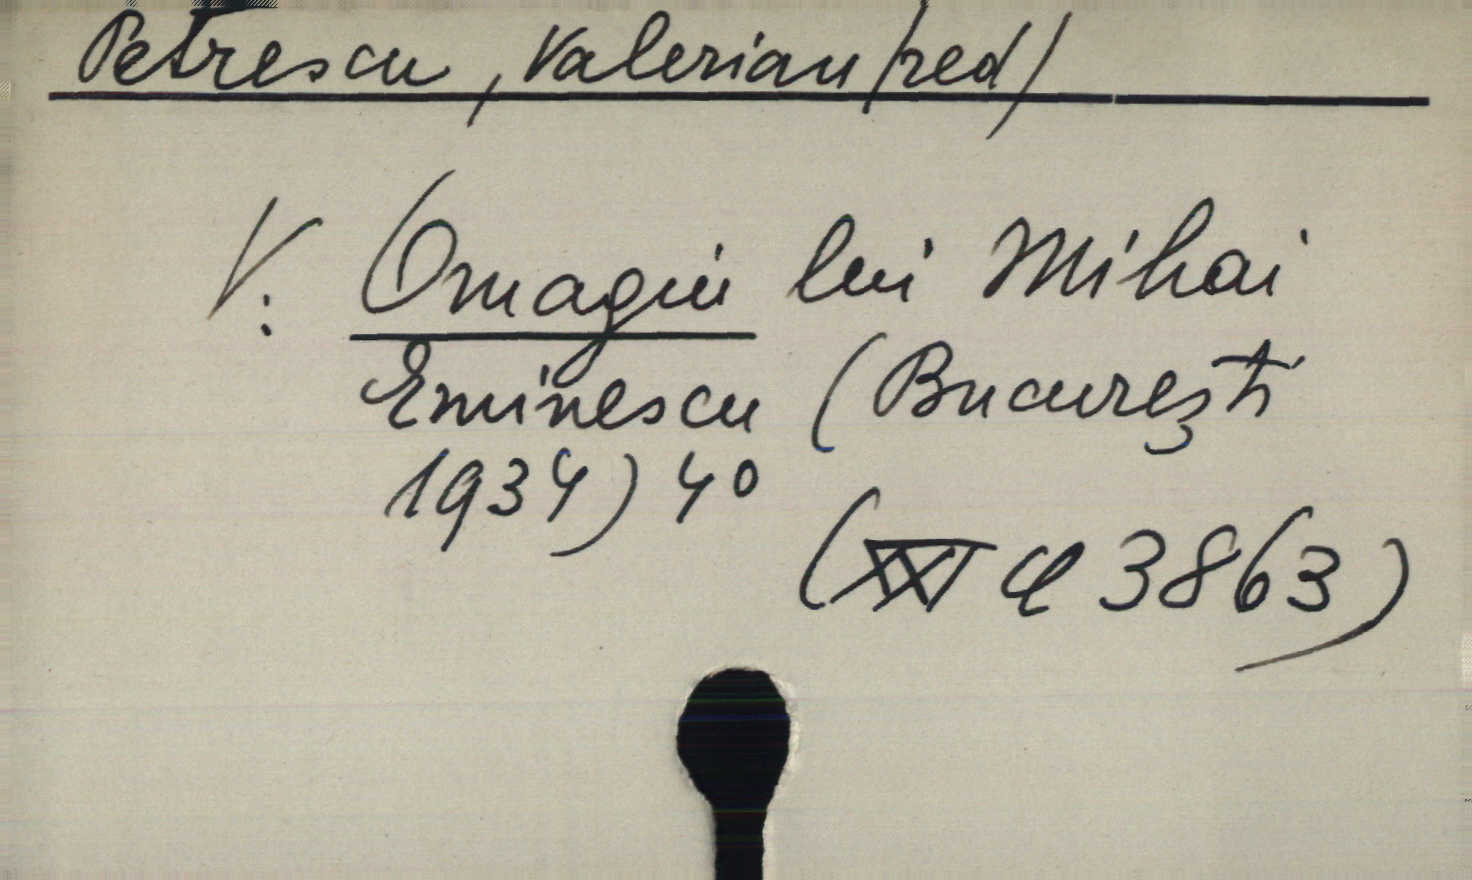 Petrescu, Valerian /red/
V: Omagiu lui Mihai
Eminescu (București
1934) 4°
(XXI 4 3863)